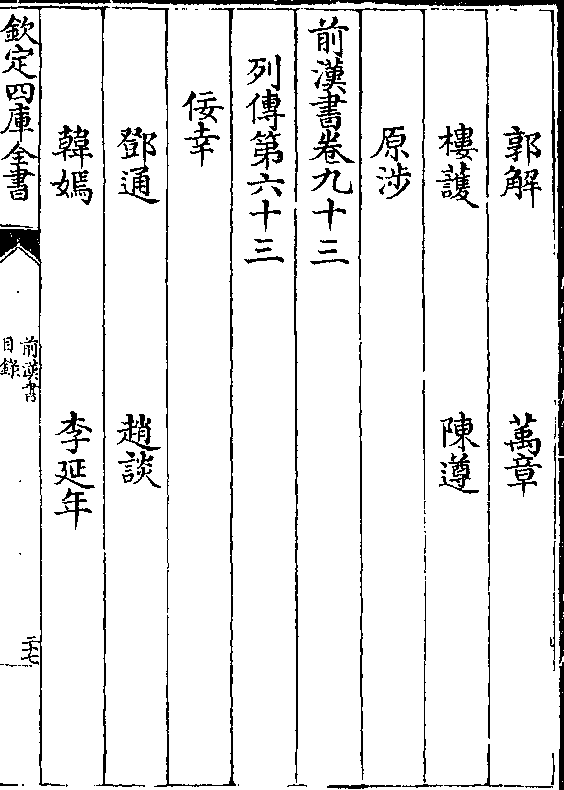 郭解 萬章
樓護 陳遵
原涉
前漢書卷九十三
列傳第六十三
佞幸
鄧通 趙談
韓嫣 李延年
欽定四庫全書 前漢書目錄 二十七